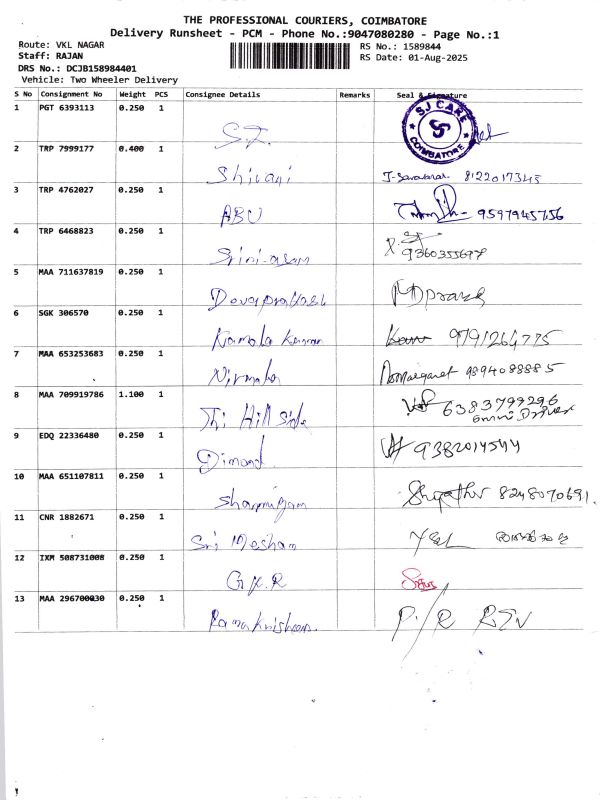 THE PROFESSIONAL COURIERS, COIMBATORE
Delivery Runsheet - PCM - Phone No.:9047080280 - Page No.:1
Route: VKL NAGAR
RS No.: 1589844
Staff: RAJAN
RS Date: 01-Aug-2025
DRS No.: DCJB158984401
Vehicle: Two Wheeler Delivery
S No Consignment No Weight PCS Consignee Details Remarks Seal & Signature
1 PGT 6393113 0.250 1
SJ CARE
COIMBATORE
S.J.
2 TRP 7999177 0.400 1
Shivani 8122017345
3 TRP 4762027 0.250 1
ABU 9597945756
4 TRP 6468823 0.250 1
9360355678
5 MAA 711637819 0.250 1
6 SGK 306570 0.250 1
Kamala 9791264775
7 MAA 653253683 0.250 1
Nirmala Margaret 9894088885
8 MAA 709919786 1.100 1
Thi Hill side 6383799296
Driver
9 EDQ 22336480 0.250 1
Dimond 9382014544
10 MAA 651107811 0.250 1
8248070691.
11 CNR 1882671 0.250 1
Sri
12 IXM 508731008 0.250 1
G.K.R
13 MAA 296700030 0.250 1
Ramakrishnan. P/R RTN